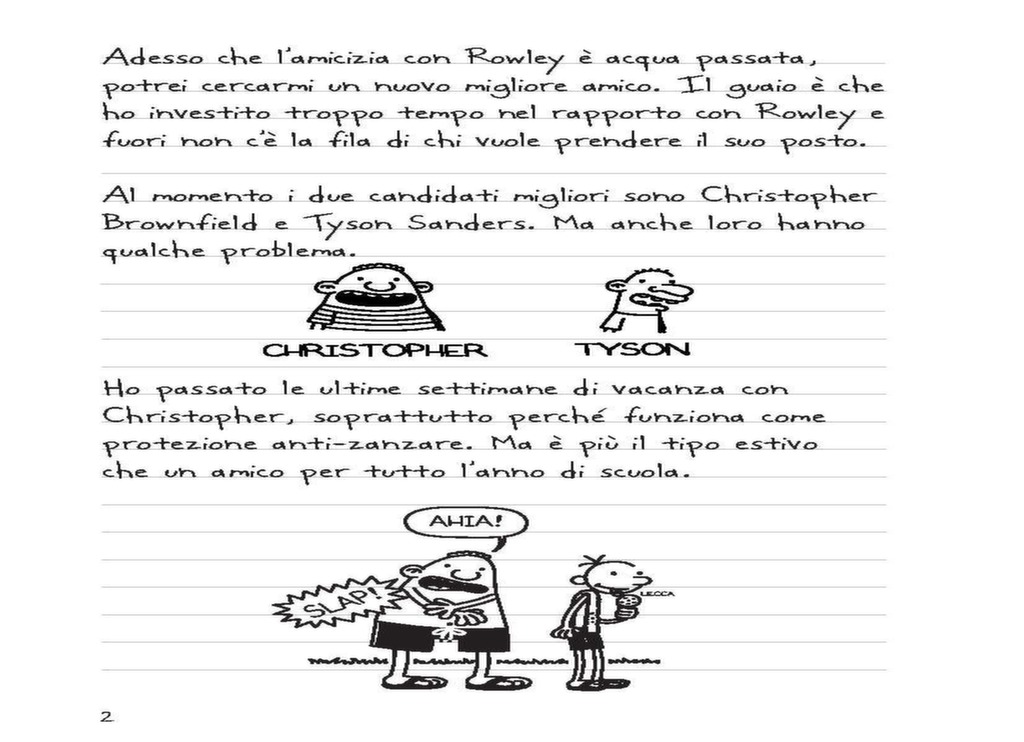 Adesso che l'amicizia con Rowley è acqua passata,
potrei cercarmi un nuovo migliore amico. Il guaio è che
ho investito troppo tempo nel rapporto con Rowley e
fuori non c'è la fila di chi vuole prendere il suo posto.
Al momento i due candidati migliori sono Christopher
Brownfield e Tyson Sanders. Ma anche loro hanno
qualche problema.
CHRISTOPHER
TYSON
Ho passato le ultime settimane di vacanza con
Christopher, soprattutto perché funziona come
protezione anti-zanzare. Ma è più il tipo estivo
che un amico per tutto l'anno di scuola.
AHIA!
SLAP!
LECCA
2